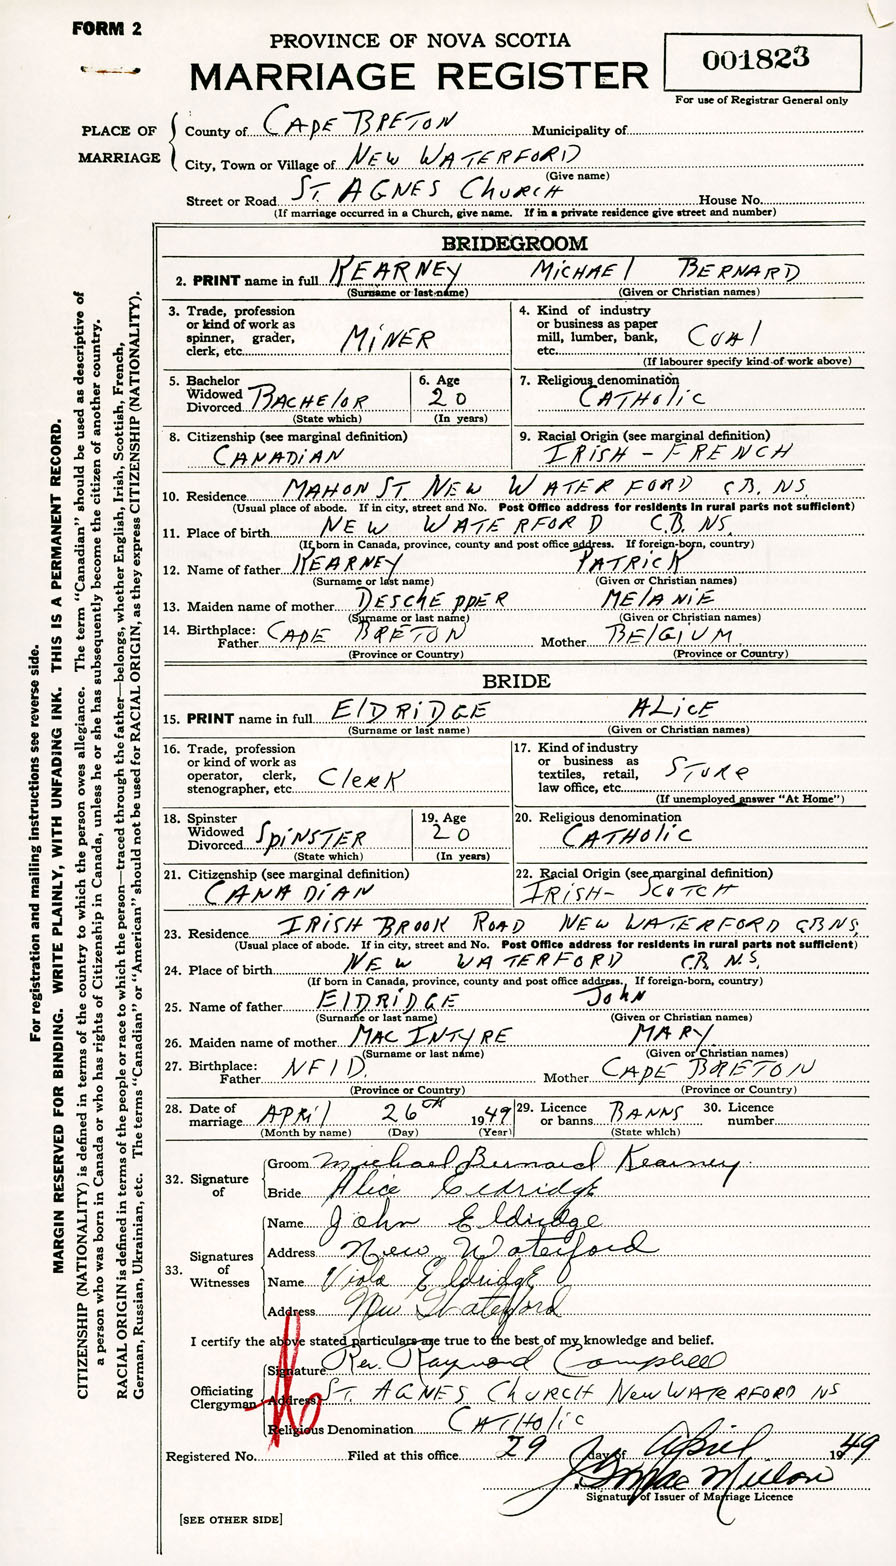 FORM 2
PROVINCE OF NOVA SCOTIA
MARRIAGE REGISTER
001823
For use of Registrar General only
PLACE OF MARRIAGE
County of CAPE BRETON Municipality of
City, Town or Village of NEW WATERFORD
(Give name)
Street or Road ST. AGNES CHURCH House No.
(If marriage occurred in a Church, give name. If in a private residence give street and number)
BRIDEGROOM
2. PRINT name in full KEARNEY MICHAEl BERNARD
(Surname or last name) (Given or Christian names)
3. Trade, profession or kind of work as spinner, grader, clerk, etc. MiNER
4. Kind of industry or business as paper mill, lumber, bank, etc. COAl
(If labourer specify kind of work above)
5. Bachelor Widowed Divorced BACHElOR
(State which)
6. Age 20
(In years)
7. Religious denomination CATHOliC
8. Citizenship (see marginal definition) CANADiAN
9. Racial Origin (see marginal definition) IRiSH - FRENCH
10. Residence MAHON ST. NEW WATERFORD C.B. N.S.
(Usual place of abode. If in city, street and No. Post Office address for residents in rural parts not sufficient)
11. Place of birth NEW WATERFORD C.B. N.S.
(If born in Canada, province, county and post office address. If foreign-born, country)
12. Name of father KEARNEY PATRiCK
(Surname or last name) (Given or Christian names)
13. Maiden name of mother DESCHEPPER MElANiE
(Surname or last name) (Given or Christian names)
14. Birthplace: Father CAPE BRETON Mother BElGiUM
(Province or Country) (Province or Country)
BRIDE
15. PRINT name in full ElDRiDGE ALiCE
(Surname or last name) (Given or Christian names)
16. Trade, profession or kind of work as operator, clerk, stenographer, etc. ClerK
17. Kind of industry or business as textiles, retail, law office, etc. STORe
(If unemployed answer "At Home")
18. Spinster Widowed Divorced SPiNSTER
(State which)
19. Age 20
(In years)
20. Religious denomination CATHOliC
21. Citizenship (see marginal definition) CANADIAN
22. Racial Origin (see marginal definition) IRISH- SCOTCH
23. Residence IRiSH BROOK ROAD NEW WATERFORD C.B. N.S.
(Usual place of abode. If in city, street and No. Post Office address for residents in rural parts not sufficient)
24. Place of birth NEW WATERFORD C.B. N.S.
(If born in Canada, province, county and post office address. If foreign-born, country)
25. Name of father ElDRiDGE JOHN
(Surname or last name) (Given or Christian names)
26. Maiden name of mother MAC INTYRE MARY
(Surname or last name) (Given or Christian names)
27. Birthplace: Father NFlD. Mother CAPE BRETON
(Province or Country) (Province or Country)
28. Date of marriage APRil 26TH 1949
(Month by name) (Day) (Year)
29. Licence or banns BANNS
(State which)
30. Licence number
32. Signature of
Groom Michael Bernard Kearney
Bride Alice Eldridge
33. Signatures of Witnesses
Name John Eldridge
Address New Waterford
Name Viola Eldridge
Address New Waterford
I certify the above stated particulars are true to the best of my knowledge and belief.
Officiating Clergyman
Signature Rev. Raymond Campbell
Address ST. AGNES CHURCH NEW WATERFORD NS
Religious Denomination CATHOliC
Registered No. Filed at this office 29 day of April 1949
Signature of Issuer of Marriage Licence
[SEE OTHER SIDE]
For registration and mailing instructions see reverse side.
MARGIN RESERVED FOR BINDING. WRITE PLAINLY, WITH UNFADING INK. THIS IS A PERMANENT RECORD.
CITIZENSHIP (NATIONALITY) is defined in terms of the country to which the person owes allegiance. The term "Canadian" should be used as descriptive of
a person who was born in Canada or who has rights of Citizenship in Canada, unless he or she has subsequently become the citizen of another country.
RACIAL ORIGIN is defined in terms of the people or race to which the person—traced through the father—belongs, whether English, Irish, Scottish, French,
German, Russian, Ukrainian, etc. The terms "Canadian" or "American" should not be used for RACIAL ORIGIN, as they express CITIZENSHIP (NATIONALITY).